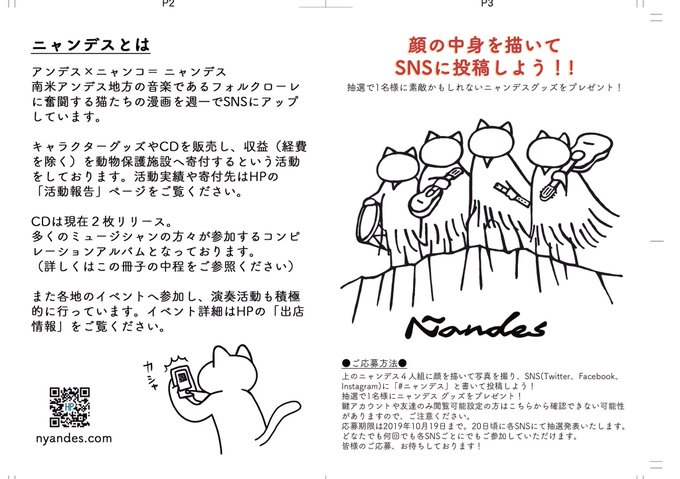 P2
ニャンデスとは
アンデス×ニャンコ＝ ニャンデス
南米アンデス地方の音楽であるフォルクローレ
に奮闘する猫たちの漫画を週一でSNSにアップ
しています。
キャラクターグッズやCDを販売し、収益（経費
を除く）を動物保護施設へ寄付するという活動
をしております。活動実績や寄付先はHPの
「活動報告」ページをご覧ください。
CDは現在２枚リリース。
多くのミュージシャンの方々が参加するコンピ
レーションアルバムとなっております。
（詳しくはこの冊子の中程をご参照ください）
また各地のイベントへ参加し、演奏活動も積極
的に行っています。イベント詳細はHPの「出店
情報」をご覧ください。
カシャ
HP
nyandes.com
P3
顔の中身を描いて
SNSに投稿しよう！！
抽選で1名様に素敵かもしれないニャンデスグッズをプレゼント！
Ñandes
●ご応募方法●
上のニャンデス４人組に顔を描いて写真を撮り、SNS(Twitter、Facebook、
Instagram)に「#ニャンデス」と書いて投稿しよう！
抽選で1名様にニャンデス グッズをプレゼント！
鍵アカウントや友達のみ閲覧可能設定の方はこちらから確認できない可能性
がありますので、ご注意ください。
応募期限は2019年10月19日まで。20日頃に各SNSにて抽選発表いたします。
どなたでも何回でも各SNSごとにでもご参加していただけます。
皆様のご応募、お待ちしております！